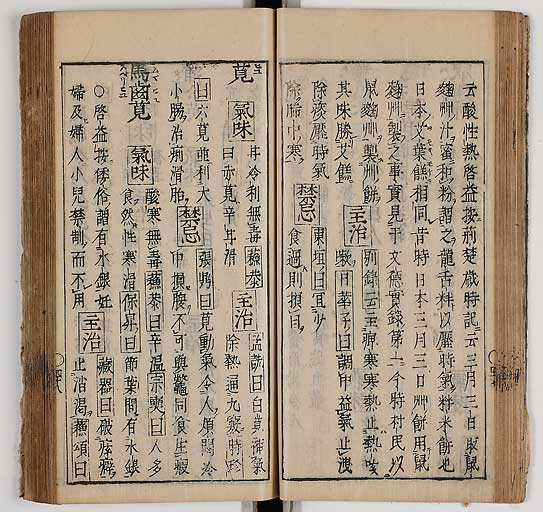 云酸性熱啓益按荊楚歲時記云三月三日取鼠
麴艸汁蜜和粉謂之龍舌䉽以壓時氣䉽米餅也
日本艾葉饊相同昔時日本三月三日艸餅用鼠
麴艸製之事實見于文德實錄第一今時村民以
鼠麴艸製艸餅
其味勝艾饊
主治
別錄云主痺寒寒熱止熱咳
日華子曰調中益氣止洩
除痰壓時氣
除肺中寒
禁忌
東垣曰宜少
食過則損目
莧
氣味
甘冷利無毒蘇恭
曰赤莧辛丹滑
主治
孟詵曰白莧補氣
除熱通九竅時珍
曰六莧並利大
小腸治痢滑胎
禁忌
張鼎曰莧動氣令人煩悶冷
中損腹不可與鼈同食生瘕
馬齒莧
氣味
酸寒無毒蘇恭曰辛溫宗奭曰人多
食然性寒滑保昇曰節葉間有水銀
○啓益按倭俗謂有水銀妊
婦及婦人小兒禁制而不用
主治
藏器曰破痃癖
止消渴蘇頌曰